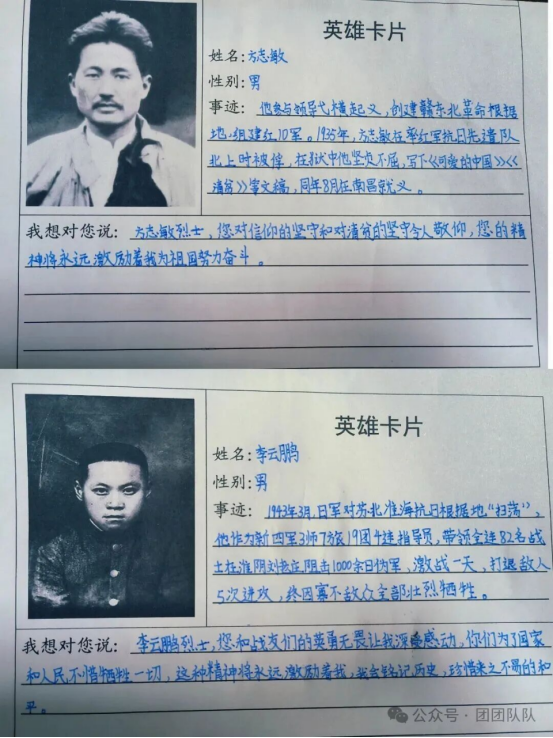 英雄卡片
姓名：方志敏
性别：男
事迹：他参与领导弋横起义，创建赣东北革命根据
地，组建红10军。1935年，方志敏在率红军抗日先遣队
北上时被俘，在狱中他坚贞不屈，写下《可爱的中国》《
清贫》等文稿，同年8月在南昌就义。
我想对您说：方志敏烈士，您对信仰的坚守和对清贫的坚守令人敬仰，您的精
神将永远激励着我为祖国努力奋斗。
英雄卡片
姓名：李云鹏
性别：男
事迹：1943年3月，日军对苏北淮海抗日根据地“扫荡”，
他作为新四军3师7旅19团4连指导员，带领全连82名战
士在淮阴刘老庄阻击1000余日伪军，激战一天，打退敌人
5次进攻，终因寡不敌众全部壮烈牺牲。
我想对您说：李云鹏烈士，您和战友们的英勇无畏让我深受感动，你们为了国家
和人民，不惜牺牲一切，这种精神将永远激励着我，我会铭记历史，珍惜来之不易的和
平。
公众号·团团队队